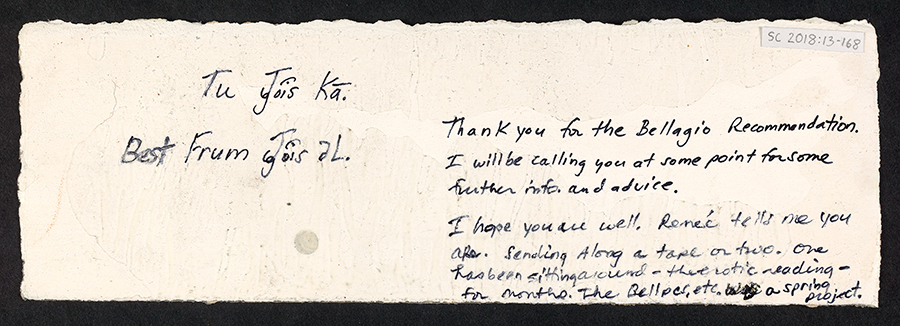 SC 2018:13-168
Tu Jôis Kā.
Best Frum Jôis əL.
Thank you for the Bellagio Recommendation.
I will be calling you at some point for some
further info. and advice.
I hope you are well. Reneé tells me you
are. Sending Along a tape or two. One
has been sitting around - reading -
for months. The etc. was a spring
project.